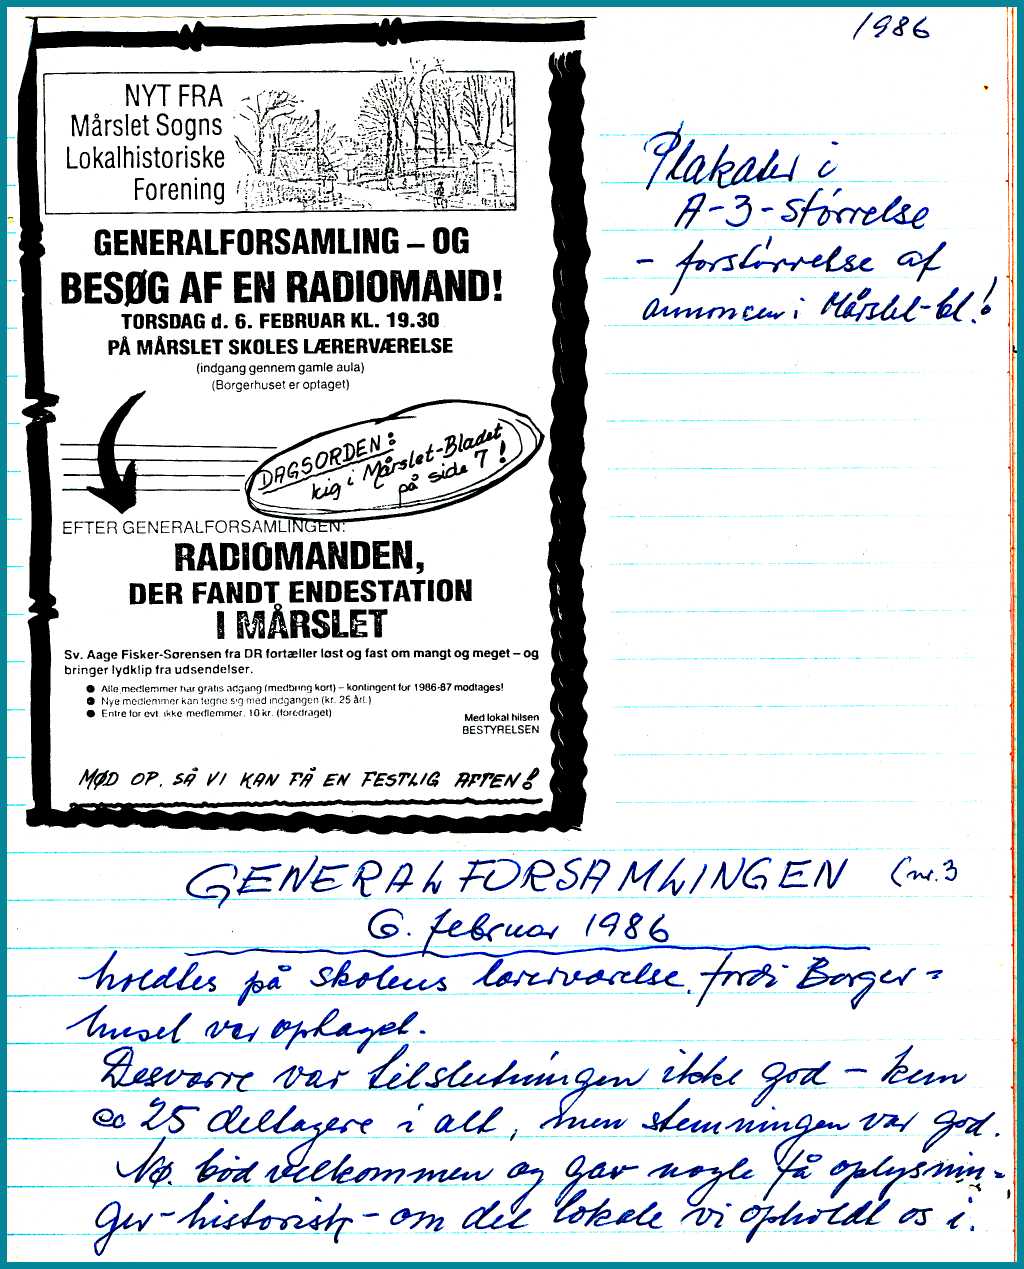 1986
NYT FRA
Mårslet Sogns
Lokalhistoriske
Forening
GENERALFORSAMLING – OG
BESØG AF EN RADIOMAND!
TORSDAG d. 6. FEBRUAR KL. 19.30
PÅ MÅRSLET SKOLES LÆRERVÆRELSE
(indgang gennem gamle aula)
(Borgerhuset er optaget)
DAGSORDEN:
kig i Mårslet-Bladet
på side 7!
EFTER GENERALFORSAMLINGEN:
RADIOMANDEN,
DER FANDT ENDESTATION
I MÅRSLET
Sv. Aage Fisker-Sørensen fra DR fortæller løst og fast om mangt og meget – og
bringer lydklip fra udsendelser.
● Alle medlemmer har gratis adgang (medbring kort) – kontingent for 1986-87 modtages!
● Nye medlemmer kan tegne sig med indgangen (kr. 25 årl.)
● Entre for evt. ikke medlemmer. 10 kr. (foredraget)
Med lokal hilsen
BESTYRELSEN
MØD OP. SÅ VI KAN FÅ EN FESTLIG AFTEN!
Plakater i
A-3-størrelse
- forstørrelse af
annoncen i Mårslet-bl.!
GENERALFORSAMLINGEN (nr. 3
6. februar 1986
holdtes på skolens lærerværelse, fordi Borger=
huset var optaget.
Desværre var tilslutningen ikke god – kun
ca 25 deltagere i alt, men stemningen var god.
NØ. bød velkommen og gav nogle få oplysnin=
ger – historisk – om det lokale vi opholdt os i.